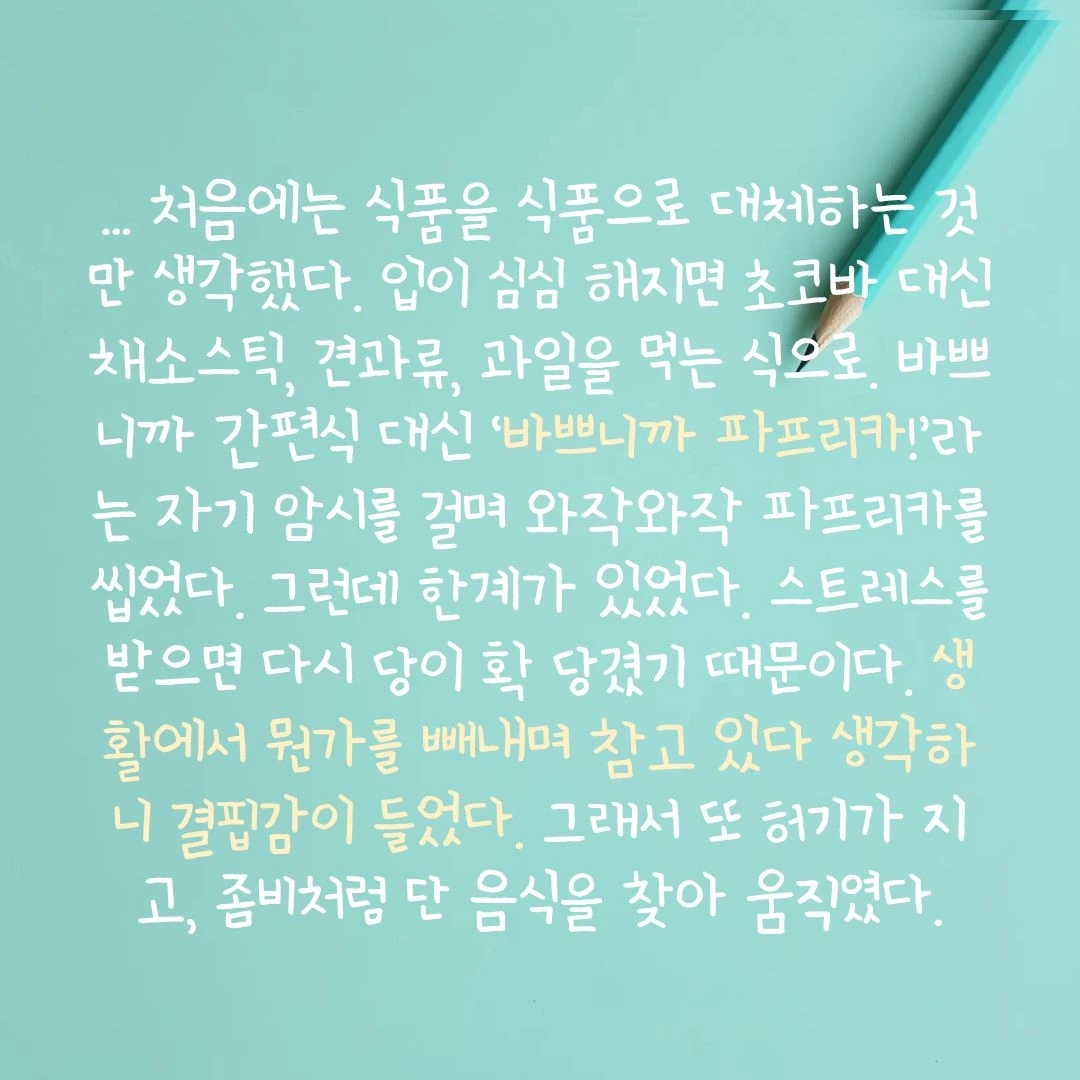 ... 처음에는 식품을 식품으로 대체하는 것
만 생각했다. 입이 심심 해지면 초코바 대신
채소스틱, 견과류, 과일을 먹는 식으로. 바쁘
니까 간편식 대신 ‘바쁘니까 파프리카!’라
는 자기 암시를 걸며 와작와작 파프리카를
씹었다. 그런데 한계가 있었다. 스트레스를
받으면 다시 당이 확 당겼기 때문이다. 생
활에서 뭔가를 빼내며 참고 있다 생각하
니 결핍감이 들었다. 그래서 또 허기가 지
고, 좀비처럼 단 음식을 찾아 움직였다.